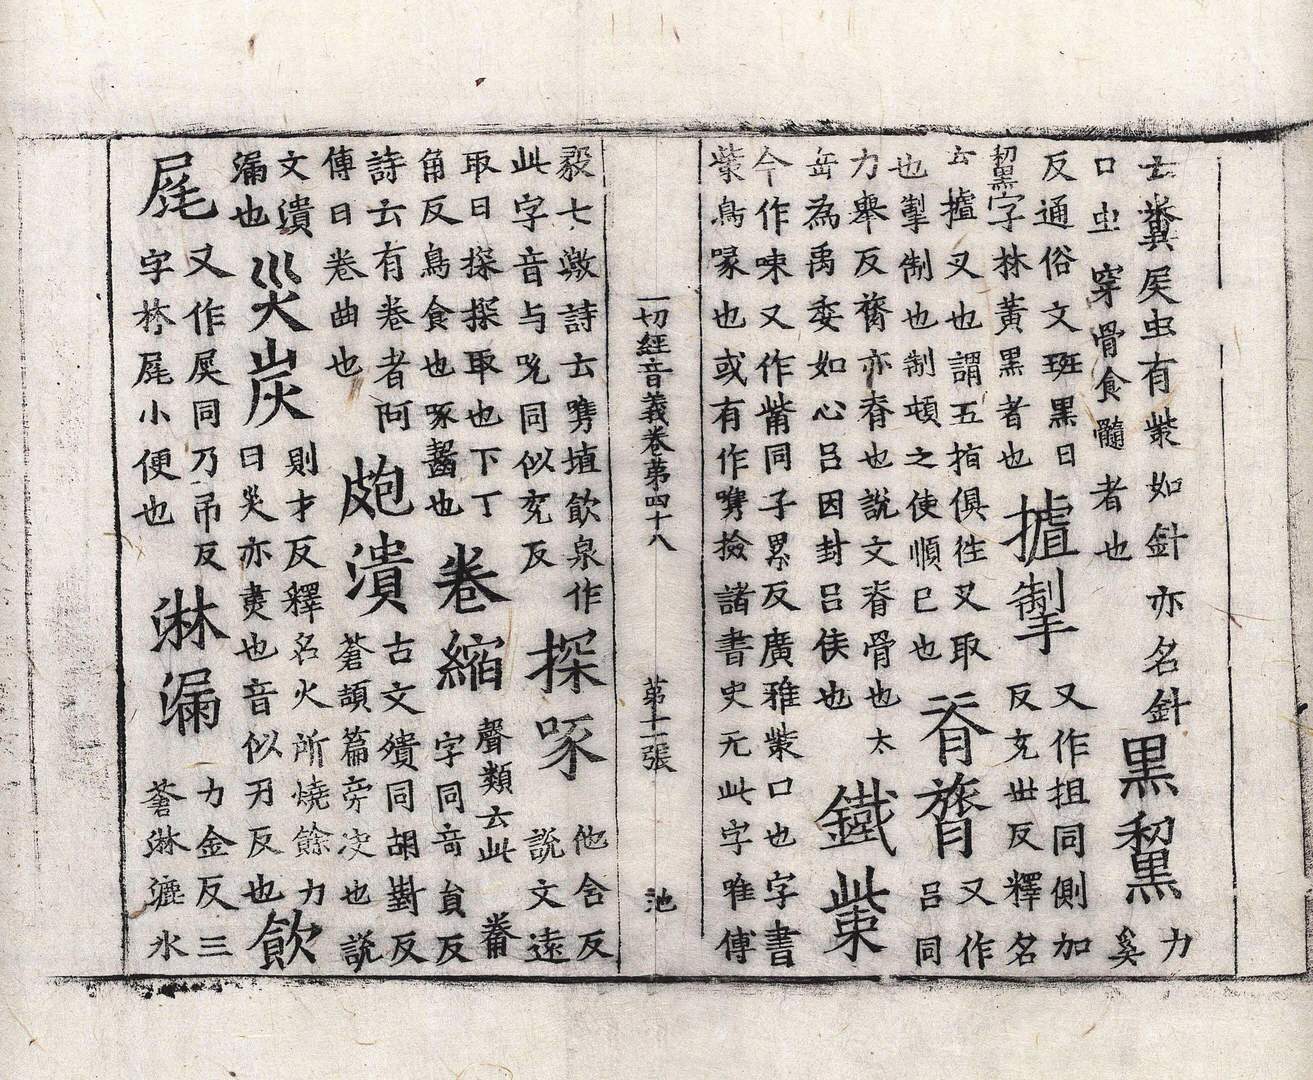 云糞屎虫有㭰如針亦名針
口虫穿骨食髓者也
黒黧
力
奚
反通俗文班黒曰
黧字林黃黒者也
摣掣
又作抯同側加
反充世反釋名
云摣叉也謂五指俱徃叉取
也掣制也制頓之使順已也
脊膂
又作
呂同
力舉反膂亦脊也說文脊骨也太
岳為禹委如心呂因封呂侯也
鐵㭰
今作㖨又作觜同子累反廣雅㭰口也字書
㭰鳥喙也或有作㗪撿諸書史无此字唯傅
一切經音義卷第四十八 第十一張 池
毅七激詩云㗪埴飲泉作
此字音与兊同似兖反
探啄
他含反
說文遠
取曰探探取也下丁
角反鳥食也啄齧也
卷縮
聲類云此觠
字同奇員反
詩云有卷者阿
傳曰卷曲也
皰潰
古文殨同胡對反
蒼頡篇旁决也說
文潰
漏也
災炭
則才反釋名火所燒餘力
曰災亦㶳也音似刃反也
飲
㞙
又作㞙同乃吊反
字林㞙小便也
淋漏
力金反三
蒼淋漉水